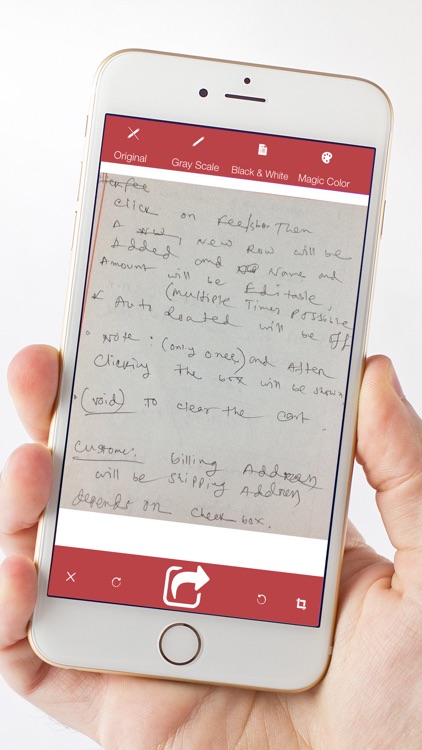 Original Gray Scale Black & White Magic Color
click on Fee/sbor Then
A new New Row will be
Added and Name and
Amount will be Editable,
(Multiple Times possible
Auto loated will be off
Note: (only once) and After
Clicking The box will be shown
(void) To clear the cart.
Customer: billing Address
will be shipping Address
depends on check box.